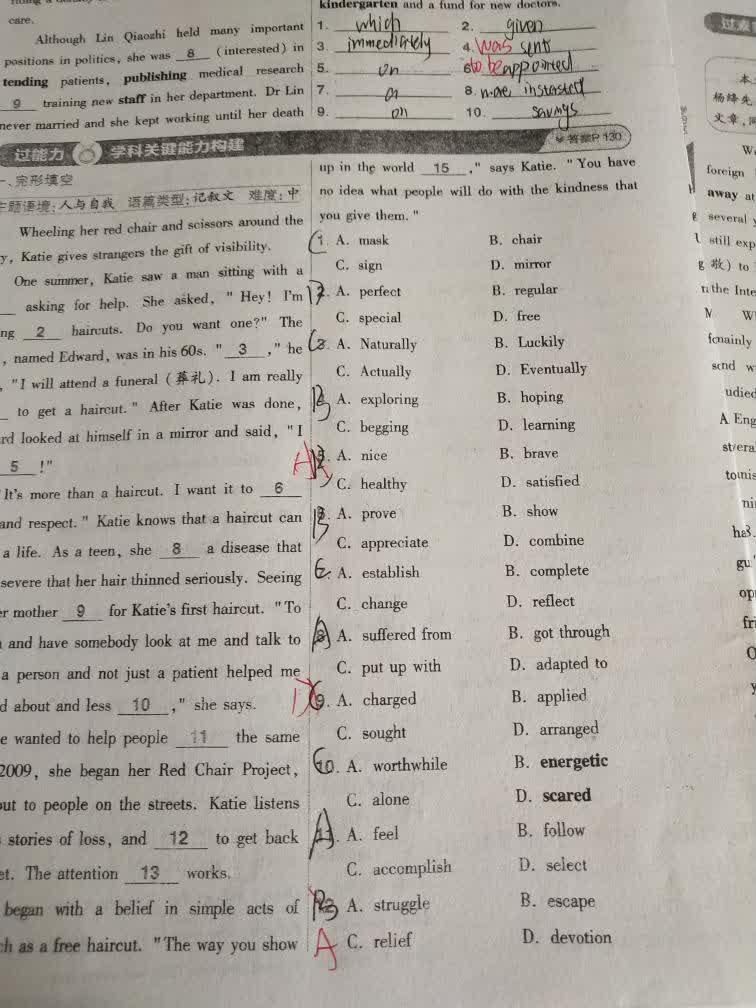 care.
Although Lin Qiaozhi held many important
positions in politics, she was 8 (interested) in
tending patients, publishing medical research
9 training new staff in her department. Dr Lin
never married and she kept working until her death
kindergarten and a fund for new doctors.
1. which 2. given
3. immediately 4. was sent
5. on 6. to be appointed
7. 8.
9. on 10.
过能力 学科关键能力构建 答案P 130
一、完形填空
主题语境:人与自我 语篇类型:记叙文 难度:中
Wheeling her red chair and scissors around the
y, Katie gives strangers the gift of visibility.
One summer, Katie saw a man sitting with a
asking for help. She asked, "Hey! I'm
ng 2 haircuts. Do you want one?" The
, named Edward, was in his 60s. " 3 ," he
, "I will attend a funeral (葬礼). I am really
to get a haircut." After Katie was done,
rd looked at himself in a mirror and said, "I
5 !"
"It's more than a haircut. I want it to 6
and respect." Katie knows that a haircut can
a life. As a teen, she 8 a disease that
severe that her hair thinned seriously. Seeing
er mother 9 for Katie's first haircut. "To
and have somebody look at me and talk to
a person and not just a patient helped me
d about and less 10 ," she says.
e wanted to help people 11 the same
2009, she began her Red Chair Project,
out to people on the streets. Katie listens
stories of loss, and 12 to get back
et. The attention 13 works.
began with a belief in simple acts of
ch as a free haircut. "The way you show
up in the world 15 ," says Katie. "You have
no idea what people will do with the kindness that
you give them."
C 1. A. mask B. chair
C. sign D. mirror
A. perfect B. regular
C. special D. free
C 3. A. Naturally B. Luckily
C. Actually D. Eventually
B A. exploring B. hoping
C. begging D. learning
A A. nice B. brave
C. healthy D. satisfied
B A. prove B. show
C. appreciate D. combine
A. establish B. complete
C. change D. reflect
A 8. A. suffered from B. got through
C. put up with D. adapted to
D 9. A. charged B. applied
C. sought D. arranged
10. A. worthwhile B. energetic
C. alone D. scared
A 11. A. feel B. follow
C. accomplish D. select
A. struggle B. escape
A C. relief D. devotion
过素
本
杨绛先
文章,同
W
foreign
away at
several
still exp
敬) to
n the Inte
W
mainly
send w
udied
A Eng
severa
tomis
ni
has.
gu
op
fri